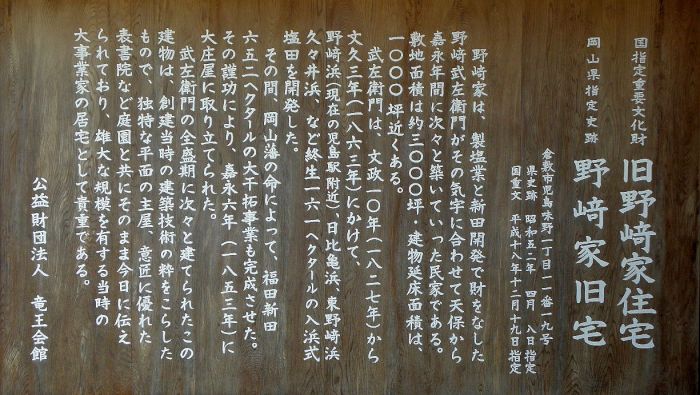 国指定重要文化財
旧野﨑家住宅
岡山県指定史跡
野﨑家旧宅
倉敷市児島味野一丁目一一番一九号
県史跡 昭和五二年 四月 八日指定
国重文 平成十八年十二月十九日指定
野﨑家は、製塩業と新田開発で財をなした
野﨑武左衛門がその気宇に合わせて天保から
嘉永年間に次々と築いていった民家である。
敷地面積は約三〇〇〇坪・建物延床面積は、
一〇〇〇坪近くある。
武左衛門は、文政一〇年(一八二七年)から
文久三年(一八六三年)にかけて、
野﨑浜(現在の児島駅附近)日比亀浜、東野﨑浜
久々井浜、など終生一六一ヘクタールの入浜式
塩田を開発した。
その間、岡山藩の命によって、福田新田
六五二ヘクタールの大干拓事業も完成させた。
その謹功により、嘉永六年(一八五三年)に
大庄屋に取り立てられた。
武左衛門の全盛期に次々と建てられたこの
建物は、創建当時の建築技術の粋をこらした
もので、独特な平面の主屋、意匠に優れた
表書院など庭園と共にそのまま今日に伝え
られており、雄大な規模を有する当時の
大事業家の居宅として貴重である。
公益財団法人 竜王会館